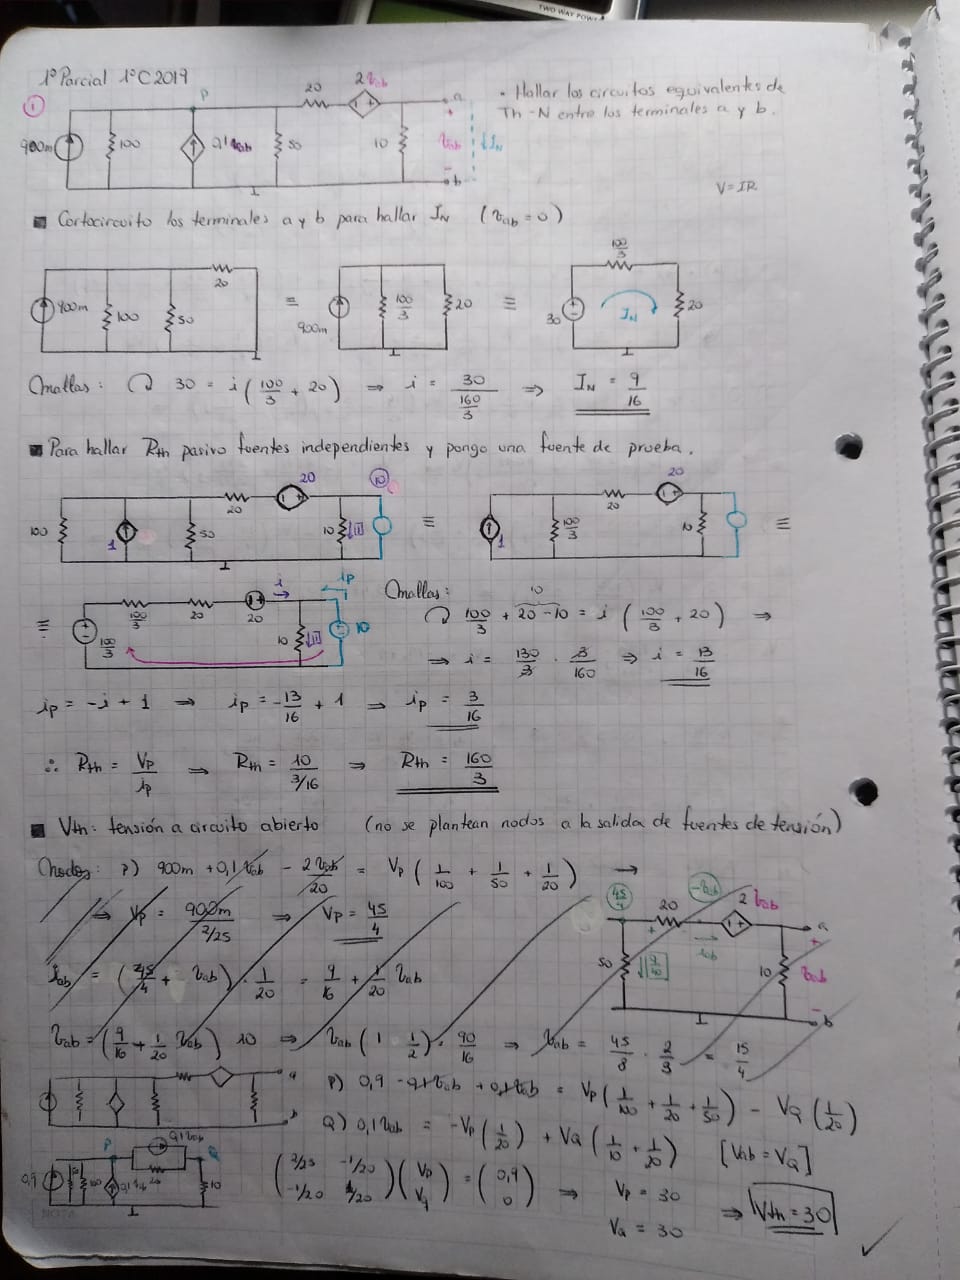 TWO WAY POWE
1º Parcial 1ºC 2019
1
P
20
2 Vab
a
900m
100
0,1 Vab
50
10
+
Vab
-
↓IN
b
• Hallar los circuitos equivalentes de
Th-N entre los terminales a y b.
V=IR
■ Cortocircuito los terminales a y b para hallar IN (Vab = 0)
900m 100 50 20
≡
900m 100/3 20
≡
30 100/3 IN 20
Mallas: 30 = i (100/3 + 20) ⇒ i = 30/(160/3) ⇒ IN = 9/16
■ Para hallar Rth pasivo fuentes independientes y pongo una fuente de prueba.
100 1 50 20 20 10 1 10
≡
1 100/3 20 20 10
≡
≡ 100/3 100/3 20 20 i ip 10 1 10
Mallas:
10
100/3 + 20 - 10 = i (100/3 + 20) ⇒
⇒ i = 130/3 · 3/160 ⇒ i = 13/16
ip = -i + 1 ⇒ ip = -13/16 + 1 ⇒ ip = 3/16
∴ Rth = Vp/ip ⇒ Rth = 10/(3/16) ⇒ Rth = 160/3
■ Vth: tensión a circuito abierto (no se plantean nodos a la salida de fuentes de tensión)
Nodos: P) 900m + 0,1 Vab - 2Vab/20 = Vp (1/100 + 1/50 + 1/20) →
⇒ Vp = 900m/(2/25) ⇒ Vp = 45/4
45/4 20 -Vab 2 Vab a
50 9/40 iab 10 + Vab - b
iab = (45/4 + Vab) · 1/20 = 9/16 + 1/20 Vab
Vab = (9/16 + 1/20 Vab) 10 ⇒ Vab (1 - 1/2) = 90/16 ⇒ Vab = 45/8 · 2/3 = 15/4
a
b
P) 0,9 - 0,1Vab + 0,1Vab = Vp (1/100 + 1/20 + 1/50) - VQ (1/20)
Q) 0,1Vab = -Vp (1/20) + VQ (1/10 + 1/20) [Vab = VQ]
0,9 50 100 P 0,1Vab 0,1Vab 20 Q 10
(2/25 -1/20 -1/20 1/20) (Vp Vq) = (0,9 0) ⇒ Vp = 30
VQ = 30
⇒ Vth = 30
NOTA